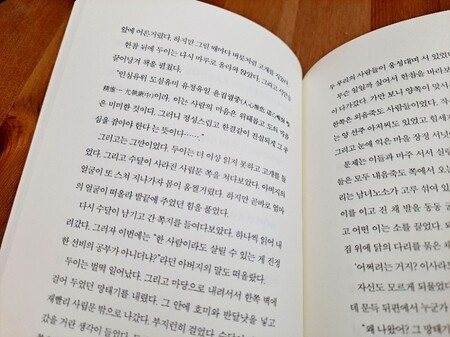 앞에 어른거렸다. 하지만 그럴 때마다 버릇처럼 고개를
한참 뒤에 두이는 다시 마루로 올라와 앉았다. 그리고
끌어당겨 책을 펼쳤다.
"인심유위 도심유미 유정유일 윤집궐중(人心惟危 道心惟微
精惟一 允執厥中)이라. 이는 사람의 마음은 위태롭고 도의
은 미미한 것이다. 그러니 정성스럽고 한결같이 진실되게 그
심을 잡아야 한다는 뜻이다……."
그리고는 그만이었다. 두이는 더 이상 읽지 못하고 고개를 들
었다. 그리고 수달이 사라진 사립문 쪽을 쳐다보았다. 아버지의
얼굴이 또 스쳐 지나가자 몸이 움찔거렸다. 하지만 곧바로 엄마
의 얼굴이 떠올라 발끝에 주었던 힘을 풀었다.
다시 수달이 남기고 간 쪽지를 들여다보았다. 하나씩 읽어 내
려갔다. 그러자 이번에는 "한 사람이라도 살릴 수 있는 게 진정
한 선비의 공부가 아니더냐?"라던 아버지의 말도 떠올랐다.
두이는 벌떡 일어났다. 그리고 마당으로 내려서서 한쪽 벽에
걸어 두었던 망태기를 내렸다. 그 안에 호미와 반달낫을 넣고
재빨리 사립문 밖으로 나갔다. 부지런히 걸었다.
갔을 거란 생각이 들었다.
두 부리의 사람들이 웅성대며 서 있었다.
무슨 일일까 싶어서 한참을 바라보
이 다가갔다. 가만 보니 양쪽이
한쪽은 외중촌 사람들이었다.
는 양 선주 아저씨도 있었고
그리고 눈에 익은 마을 장정 서넛
문제는 이들과 마주 서서
들은 모두 내동촌 쪽에
리는 남녀노소가 고루 섞이
이를 이고 진 채 발을 동동
고 어떤 이는 소를 끌었다.
짐 위에 닭의 다리를 묶은
"어쩌려는 거지?
자신도 모르게 되뇌었다
데 문득 뒤편에서 누군가
"왜 나왔어?